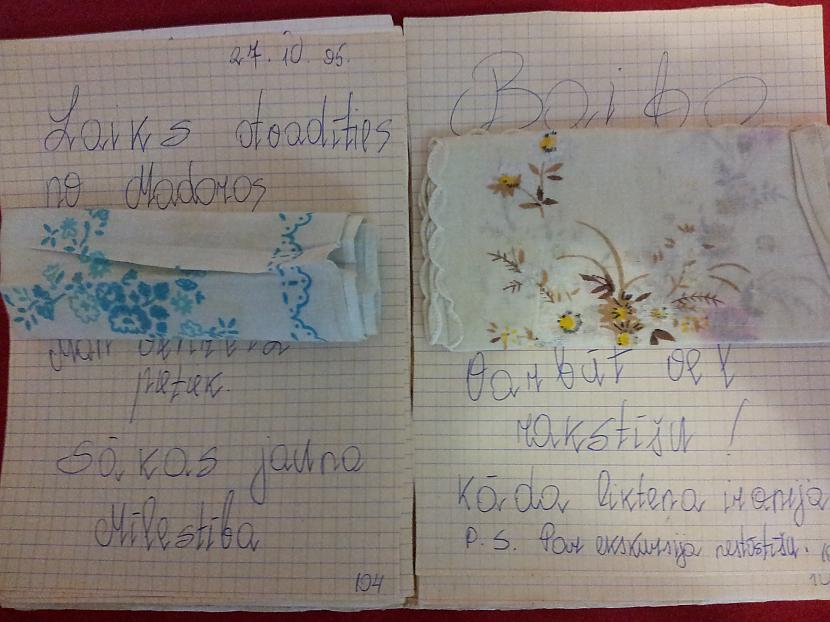 27. 10. 95.
Laiks atvadīties
no Madaras
Man
pietiek.
Sākas jauna
Mīlestība
104
Baiba
Varbūt vēl
rakstīšu!
Kāda likteņa ironija
P.S. Par ekskursija nestāstīšu.